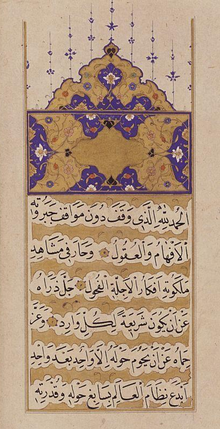 الحمد لله الذي وقف دون مواقف جبروته
الأفهام والعقول وحار في مشاهد
ملكوته أفكار الأجلة الفحول جل ذراه
عز ان يكون شريعة لكل وارد وعز
حماه عز ان يحوم حوله الا واحد بعد واحد
ابدع نظام العالم بسابغ حوله وقدرته